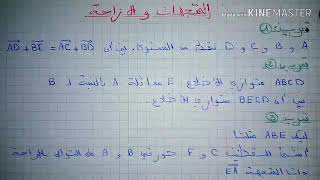 المتجهات و الإزاحة
KINEMASTER
تمرين ①
A و B و C و D نقط من المستوى. بين أن AD + BC = AC + BD
تمرين ②
ABCD متوازي الأضلاع. E مماثلة A بالنسبة ل B
بين أن BECD متوازي الأضلاع.
تمرين ③
ليكن ABE مثلثا
أنشئ النقطتين C و F صورتي B و A على التوالي بالإزاحة
ذات المتجهة EA